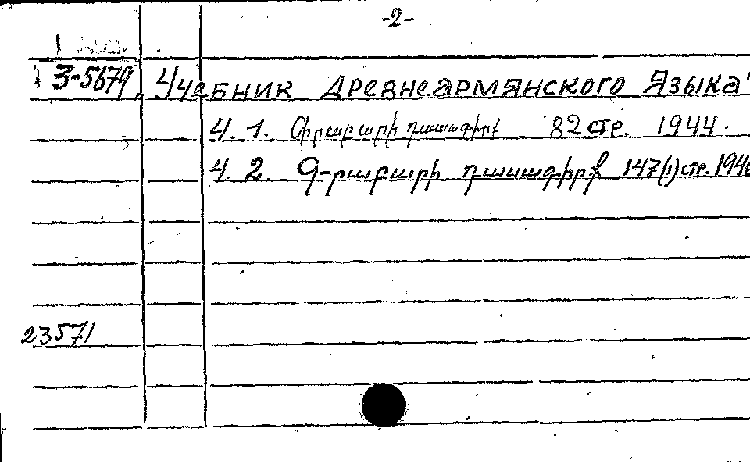 -2-
З-5679. Учебник древнеармянского языка"
Ч. 1. Գրաբարի դասագիրք 82 стр. 1944.
Ч. 2. Գրաբարի դասագիրք 147(1) стр. 194
23571